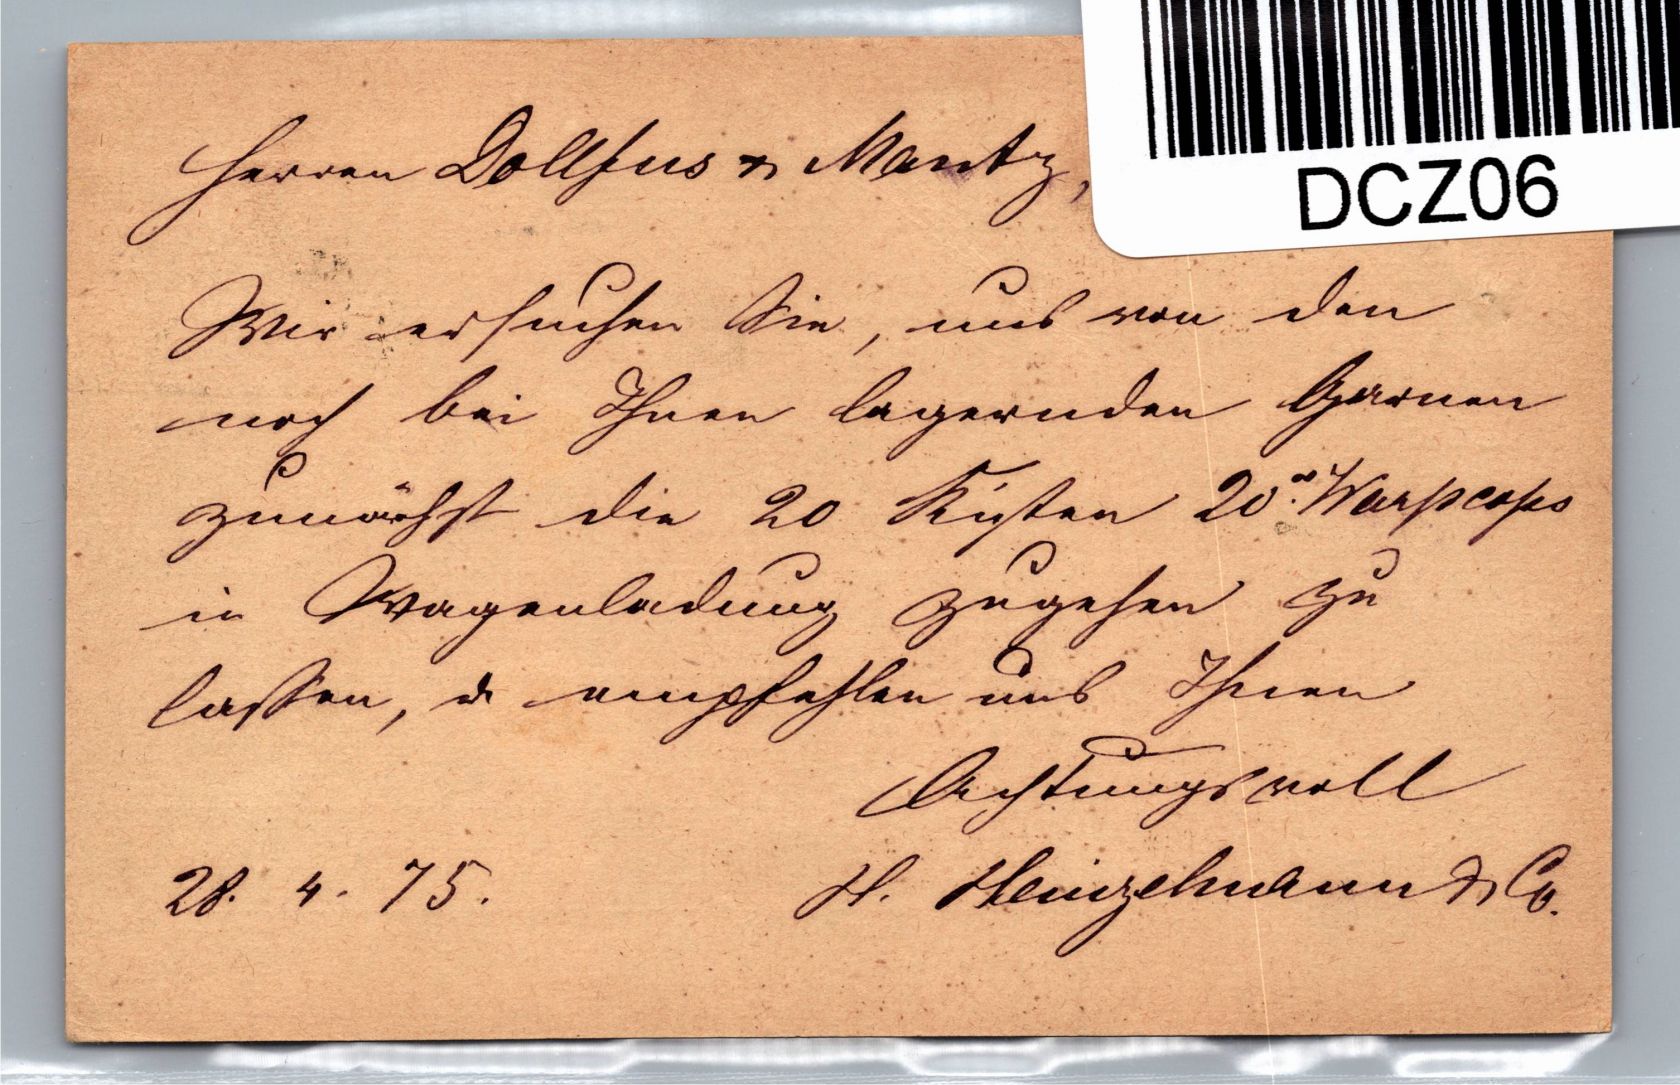 Herren Dollfus & Mantz,
DCZ06
Wir ersuchen Sie, uns von den
noch bei Ihnen lagernden Garnen
zunächst die 20 Kisten 20er Warpcops
in Wagenladung zugehen zu
lassen, & empfehlen uns Ihnen
Achtungsvoll
28. 4. 75. H. Heinzelmann & Co.